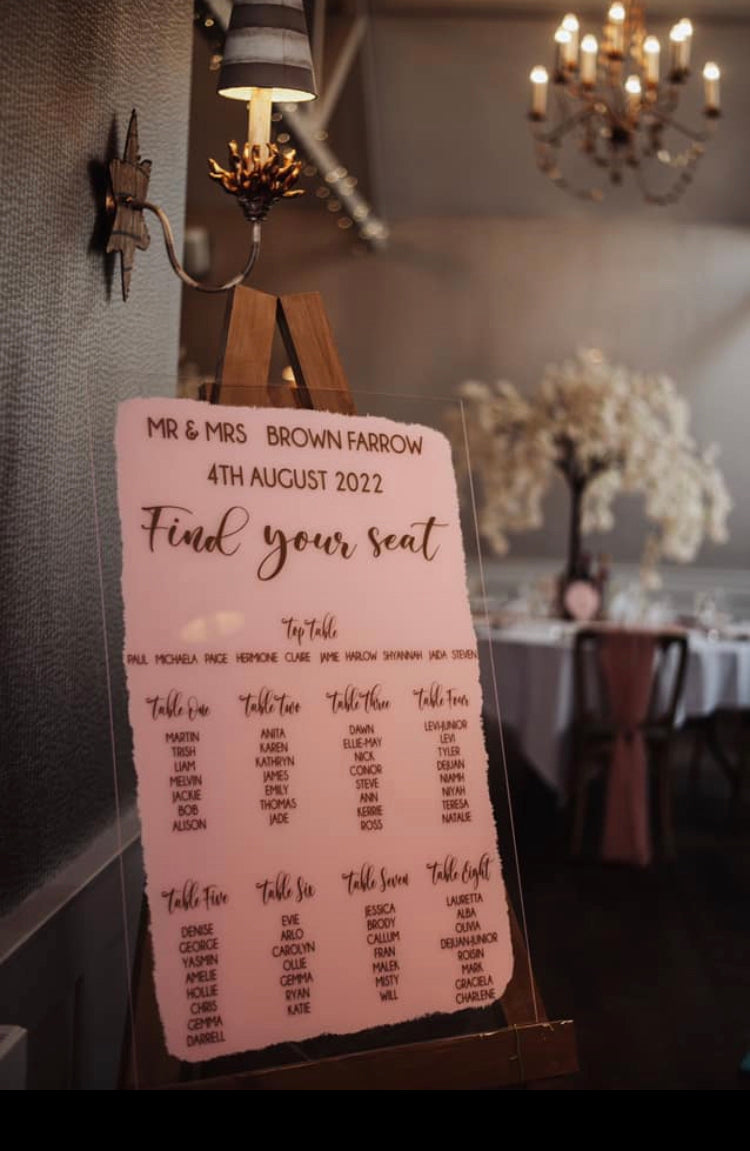 MR & MRS BROWN FARROW
4TH AUGUST 2022
Find your seat
Top Table
PAUL MICHAELA PAIGE HERMIONE CLAIRE JAMIE HARLOW SHYANNAH JAIDA STEVEN
Table One
MARTIN
TRISH
LIAM
MELVIN
JACKIE
BOB
ALISON
Table Two
ANITA
KAREN
KATHRYN
JAMES
EMILY
THOMAS
JADE
Table Three
DAWN
ELLIE-MAY
NICK
CONOR
STEVE
ANN
KERRIE
ROSS
Table Four
LEVI-JUNIOR
LEVI
TYLER
DEJUAN
NIAMH
NIYAH
TERESA
NATALIE
Table Five
DENISE
GEORGE
YASMIN
AMELIE
HOLLIE
CHRIS
GEMMA
DARRELL
Table Six
EVIE
ARLO
CAROLYN
OLLIE
GEMMA
RYAN
KATIE
Table Seven
JESSICA
BRODY
CALLUM
FRAN
MALEK
MISTY
WILL
Table Eight
LAURETTA
ALBA
OLIVIA
DEJUAN-JUNIOR
ROISIN
MARK
GRACIELA
CHARLENE